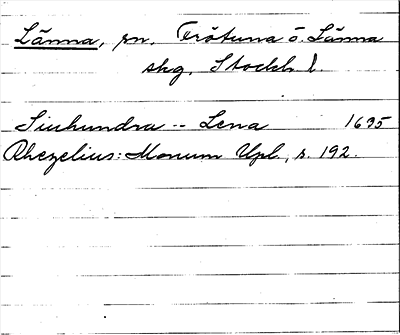 Länna, sn. Frötuna o. Länna
skg, Stockh. l.
Siuhundra -- Lena 1635
Rhezelius: Monum Upl., s. 192.